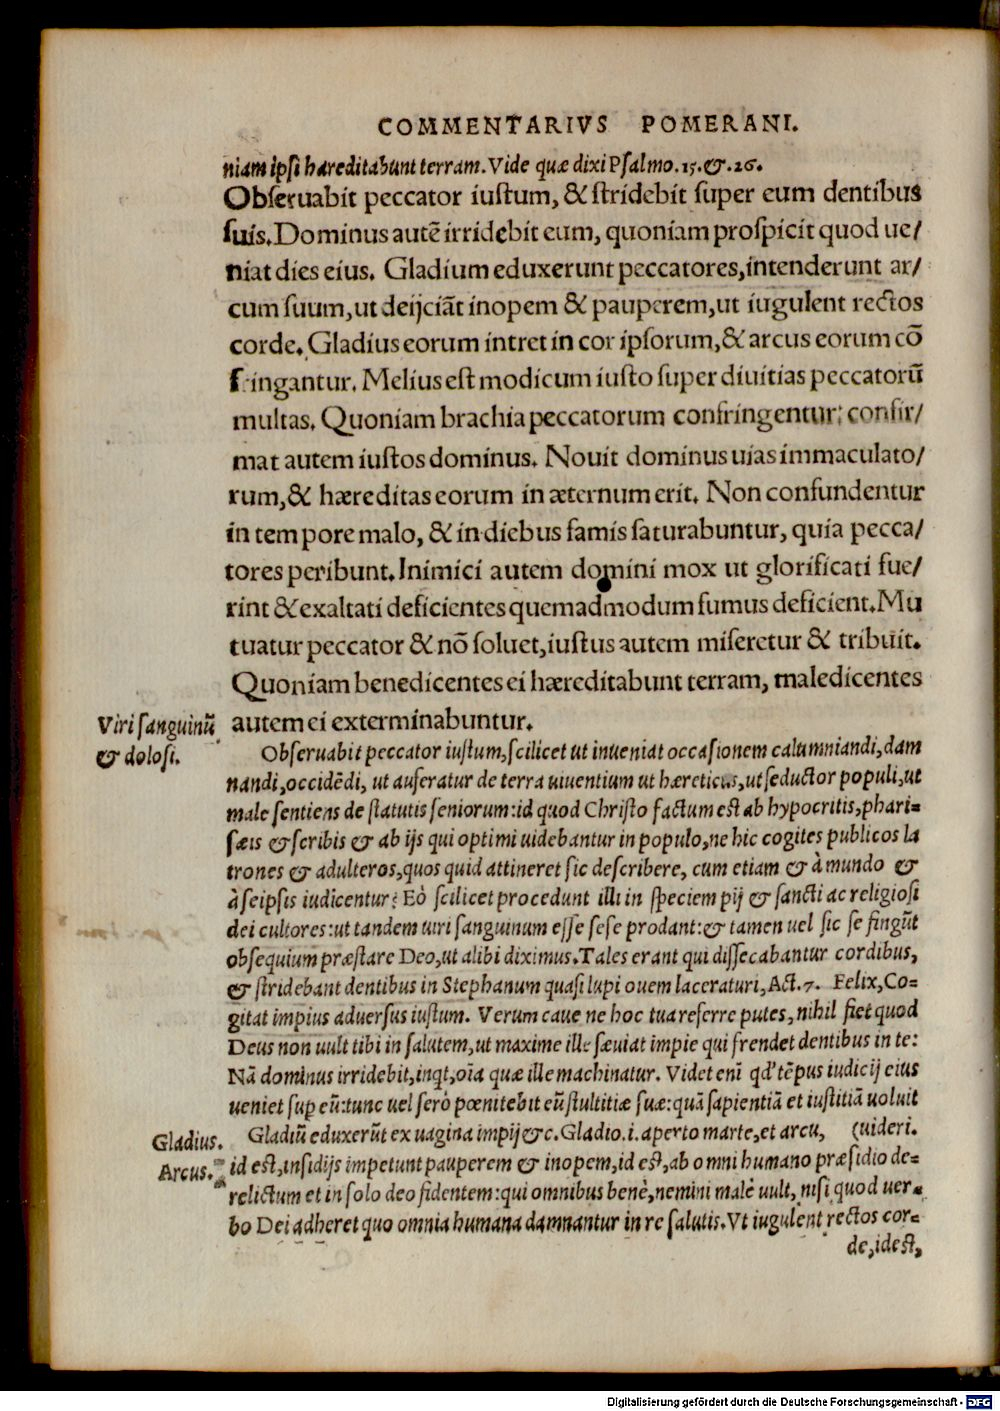 COMMENTARIVS POMERANI.
niam ipsi hæreditabunt terram. Vide quæ dixi Psalmo.15.&.26.
Obseruabit peccator iustum, & stridebit super eum dentibus
suis. Dominus autē irridebit eum, quoniam prospicit quod ue/
niat dies eius. Gladium eduxerunt peccatores, intenderunt ar/
cum suum, ut deijciāt inopem & pauperem, ut iugulent rectos
corde. Gladius eorum intret in cor ipsorum, & arcus eorum cō
fringantur. Melius est modicum iusto super diuitias peccatorū
multas. Quoniam brachia peccatorum confringentur: confir/
mat autem iustos dominus. Nouit dominus uias immaculato/
rum, & hæreditas eorum in æternum erit. Non confundentur
in tempore malo, & in diebus famis saturabuntur, quia pecca/
tores peribunt. Inimici autem domini mox ut glorificati fue/
rint & exaltati deficientes quemadmodum fumus deficient. Mu
tuatur peccator & nō soluet, iustus autem miseretur & tribuit.
Quoniam benedicentes ei hæreditabunt terram, maledicentes
Viri sanguinū
autem ei exterminabuntur.
& dolosi.
Obseruabit peccator iustum, scilicet ut inueniat occasionem calumniandi, dam
nandi, occidēdi, ut auferatur de terra uiuentium ut hæreticus, ut seductor populi, ut
male sentiens de statutis seniorum: id quod Christo factum est ab hypocritis, phari=
sæis & scribis & ab ijs qui optimi uidebantur in populo, ne hic cogites publicos la
trones & adulteros, quos quid attineret sic describere, cum etiam & à mundo &
à seipsis iudicentur? Eò scilicet procedunt illi in speciem pij & sancti ac religiosi
dei cultores: ut tandem uiri sanguinum esse sese prodant: & tamen uel sic se fingūt
obsequium præstare Deo, ut alibi diximus. Tales erant qui dissecabantur cordibus,
& stridebant dentibus in Stephanum quasi lupi ouem laceraturi, Act.7. Felix, Co=
gitat impius aduersus iustum. Verum caue ne hoc tua referre putes, nihil fiet quod
Deus non uult tibi in salutem, ut maxime ille sæuiat impie qui frendet dentibus in te:
Nā dominus irridebit, inqt, oīa quæ ille machinatur. Videt enī qd' tēpus iudicij eius
ueniet sup eū: tunc uel serò pœnitebit eū stultitiæ suæ: quā sapientiā et iustitiā uoluit
Gladius.
Gladiū eduxerūt ex uagina impij &c. Gladio .i. aperto marte, et arcu, (uideri.
Arcus.
id est, insidijs impetunt pauperem & inopem, id est, ab omni humano præsidio de=
relictum et in solo deo fidentem: qui omnibus benè, nemini malè uult, nisi quod uer=
bo Dei adheret quo omnia humana damnantur in re salutis. Vt iugulent rectos cor=
de, id est,
Digitalisierung gefördert durch die Deutsche Forschungsgemeinschaft - DFG